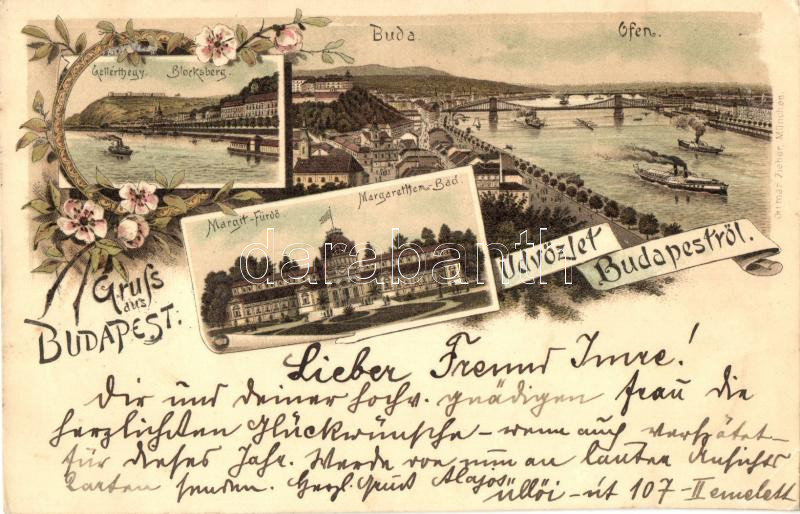 Buda Ofen.
Gellérthegy. Blocksberg.
Ottmar Zieher, München.
Margit-Fürdő Margarethen-Bad.
darabanth.com
Üdvözlet
Budapestről.
Gruß
aus
BUDAPEST:
Lieber Freund Imre!
Dir und deiner hochv. gnädigen Frau die
herzlichsten Glückwünsche – wenn auch verspätet –
für dieses Jahr. Werde von nun an lauter Ansichts
Karten senden. Herzl. Gruß Alajos
üllői-út 107-II emelett